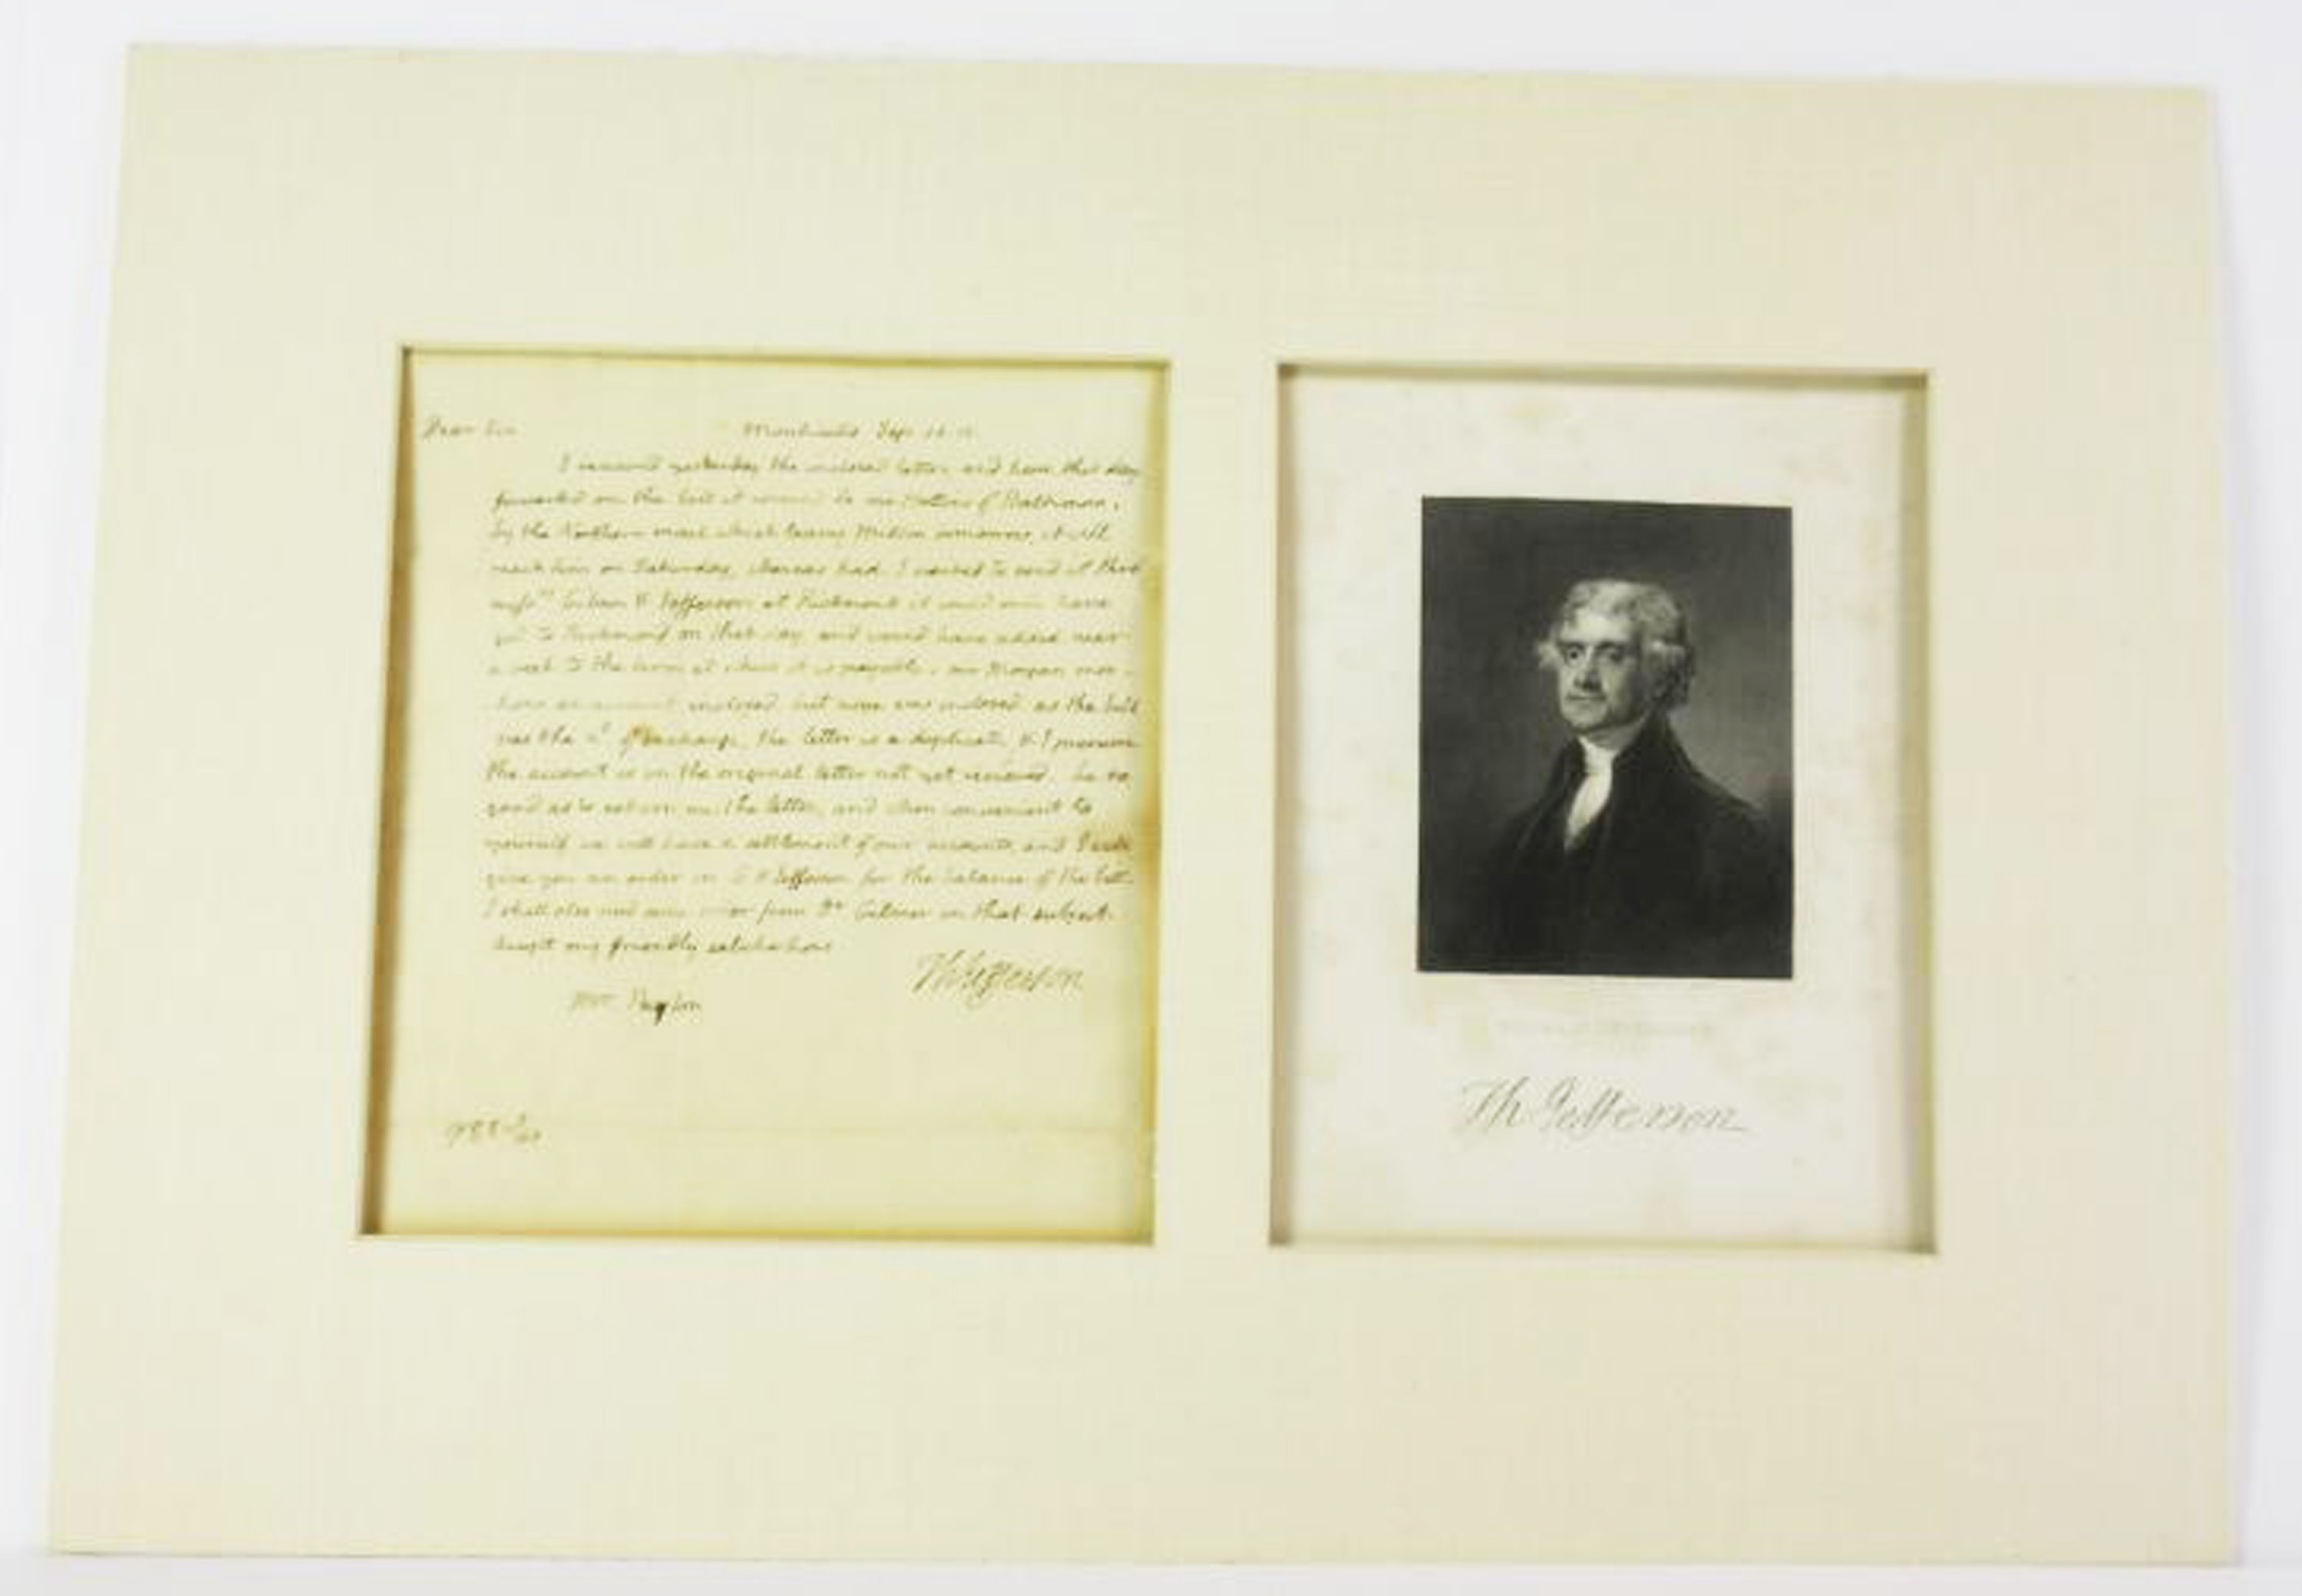 Dear Sir Monticello Sep.
I received yesterday the inclosed letter and have this day
forwarded on the bill it covered to mr Hollins of Baltimore.
by the Northern mail which leaves Milton tomorrow, it will
reach him on Saturday, whereas had I waited to send it thro'
Gibson & Jefferson at Richmond it would have
got to Richmond on that day and would have added near
a week to the term at which it is payable. mr Morgan
an account inclosed but none was inclosed. as the bill
was the of exchange, the letter is a duplicate, & I presume
the account is in the original letter not yet recieved. be so
good as to return me the letter, and when convenient to
yourself we will have a settlement of our accounts, and I will
give you an order on G & Jefferson for the balance of the bill.
I shall also from Dr on that subject.
Accept my friendly salutations
Th Jefferson
mr Peyton
Th Jefferson